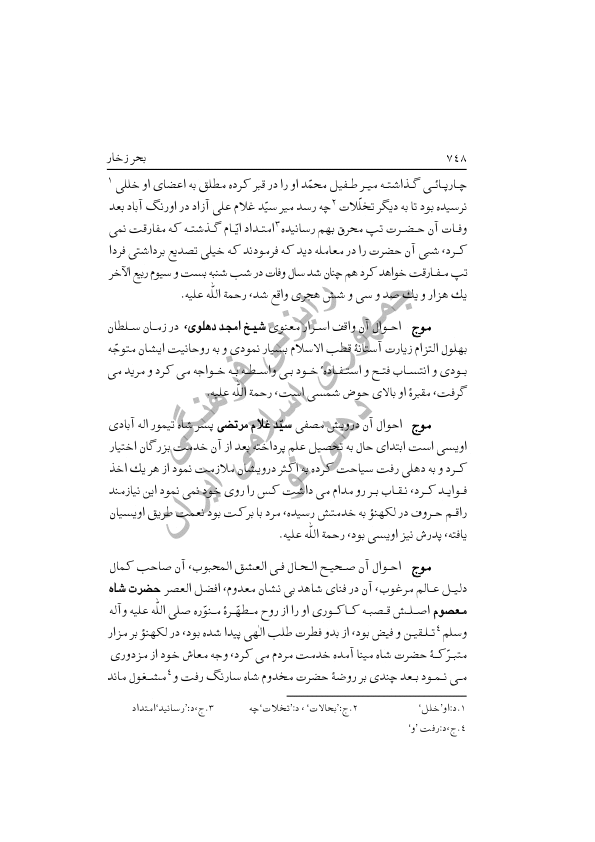 ۷۴۸ بحر زخار
چارپائی گذاشته میر طفیل محمّد او را در قبر کرده مطلق به اعضای او خللی ۱
نرسیده بود تا به دیگر تخلّلات ۲ چه رسد میر سیّد غلام علی آزاد در اورنگ آباد بعد
وفات آن حضرت تپ محرق بهم رسانیده ۳ امتداد ایّام گذشته که مفارقت نمی
کرد، شبی آن حضرت را در معامله دید که فرمودند که خیلی تصدیع برداشتی فردا
تپ مفارقت خواهد کرد هم چنان شد سال وفات در شب شنبه بست و سیوم ربیع الآخر
یك هزار و یك صد و سی و شش هجری واقع شد، رحمة الله علیه.
موج احوال آن واقف اسرار معنوی شیخ امجد دهلوی، در زمان سلطان
بهلول التزام زیارت آستانۀ قطب الاسلام بسیار نمودی و به روحانیت ایشان متوجّه
بودی و انتساب فتح و استفادۀ خود بی واسطه به خواجه می کرد و مرید می
گرفت، مقبرۀ او بالای حوض شمسی است، رحمة الله علیه.
موج احوال آن درویش مصفی سیّد غلام مرتضی پسر شاه تیمور اله آبادی
اویسی است ابتدای حال به تحصیل علم پرداخته بعد از آن خدمت بزرگان اختیار
کرد و به دهلی رفت سیاحت کرده به اکثر درویشان ملازمت نمود از هر یك اخذ
فواید کرد، نقاب بر رو مدام می داشت کس را روی خود نمی نمود این نیازمند
راقم حروف در لکهنؤ به خدمتش رسیده، مرد با برکت بود نعمت طریق اویسیان
یافته، پدرش نیز اویسی بود، رحمة الله علیه.
موج احوال آن صحیح الحال فی العشق المحبوب، آن صاحب کمال
دلیل عالم مرغوب، آن در فنای شاهد بی نشان معدوم، افضل العصر حضرت شاه
معصوم اصلش قصبه کاکوری او را از روح مطهّرۀ منوّره صلی الله علیه و آله
وسلم ۴ تلقین و فیض بود، از بدو فطرت طلب الٰهی پیدا شده بود، در لکهنؤ بر مزار
متبرّکۀ حضرت شاه مینا آمده خدمت مردم می کرد، وجه معاش خود از مزدوری
می نمود بعد چندی بر روضۀ حضرت مخدوم شاه سارنگ رفت و ۴ مشغول ماند
۱.د:او'خلل' ۲.ج:'بحالات'، د:'تخلات'چه ۳.ج،د:'رسانید'امتداد
۴.ج،د:رفت'و'
رایزنی فرهنگی
جمهوری اسلامی ایران
دهلی نو